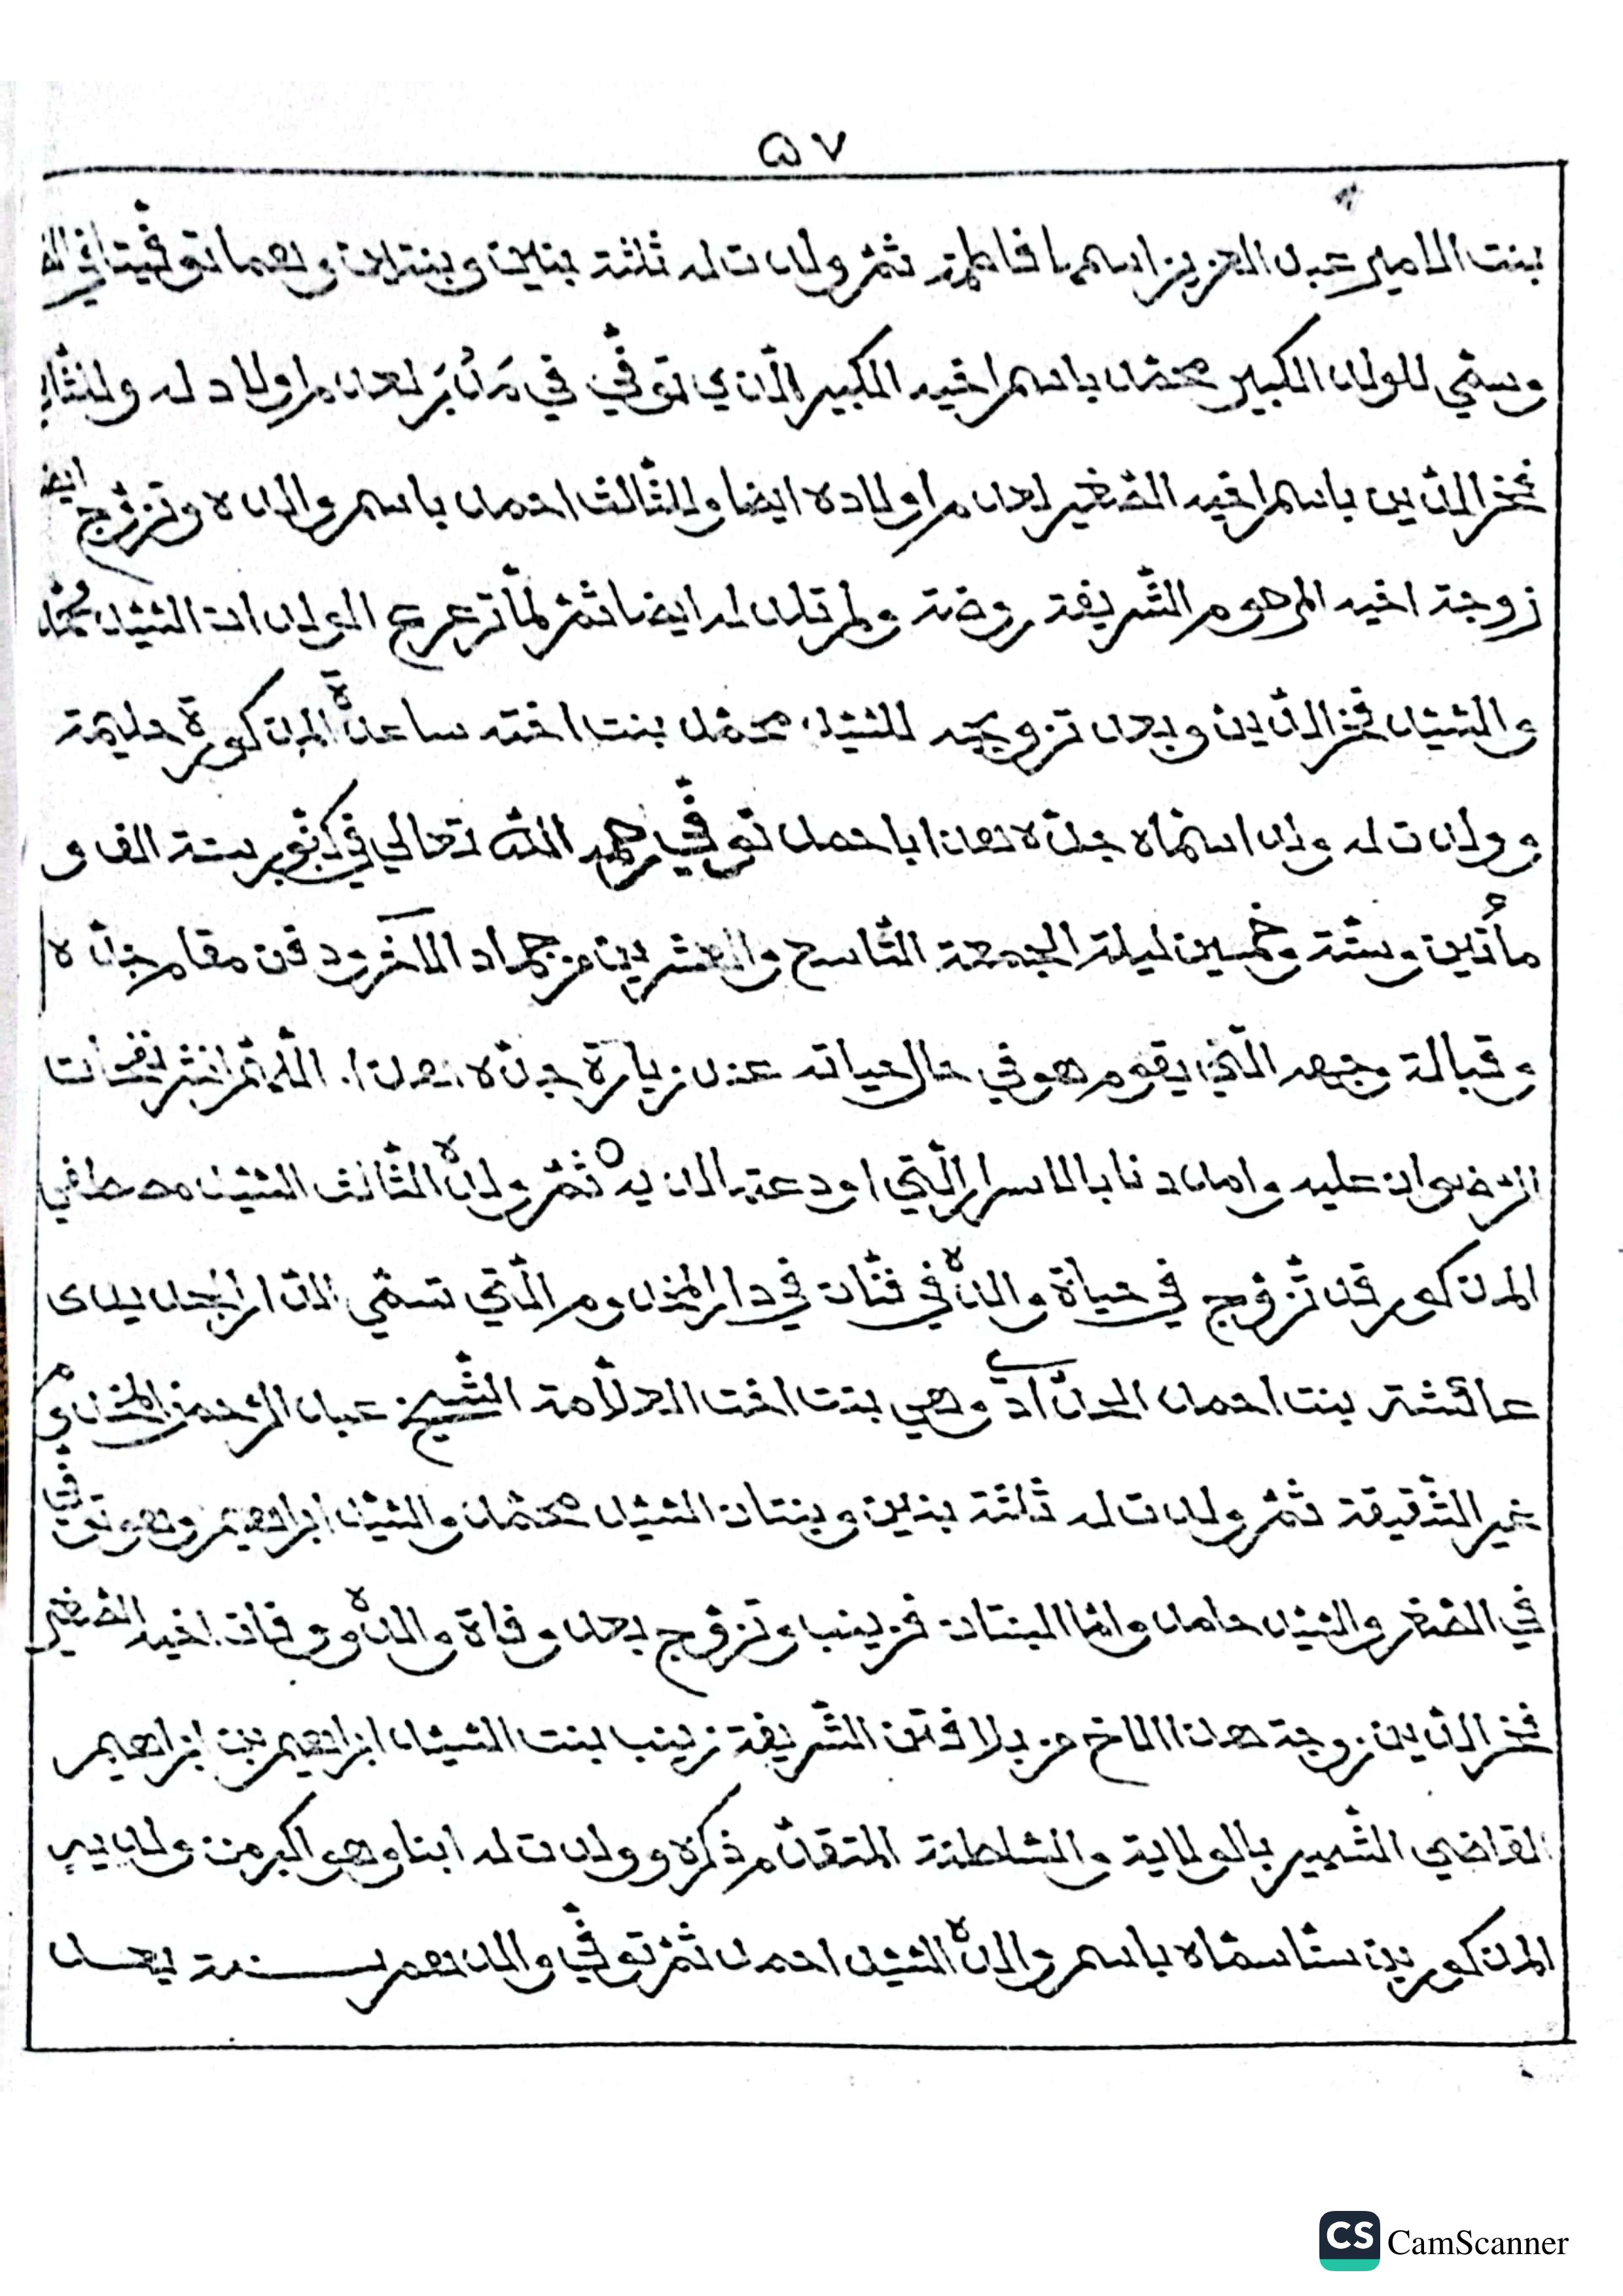 ٥٧
بنت الامير عبد العزيز اسمها فاطمة ثم ولدت له ثلثة بنين وبنتين وهما توفيتا في
وسمي للولد الكبير محمد باسم اخيه الكبير الذي توفي في مَدُبَر لعدم اولاد له وللثاني
فخر الدين باسم اخيه الصغير لعدم اولاده ايضا وللثالث احمد باسم والده وتزوج ايضا
زوجة اخيه المرحوم الشريفة روضة ولم تلد له ايضا ثم لما ترعرع الولدان السيد محمد
والسيد فخر الدين وبعد تزويجه للسيد محمد بنت اخته ساعدة المذكورة حليمة
وولدت له ولد اسماه جده هذا باحمد توفي رحمه الله تعالي في كنور سنة الف و
مأتين وستة وخمسين ليلة الجمعة التاسع والعشرين من جماد الاخر ودفن مقام جده
وقبالة وجهه التي يقوم هو في حال حياته عند زيارة جده هذا. اللهم انشر نفحات
الرضوان عليه وامددنا بالاسرار التي اودعتها لديه ثم ولده الثالث السيد مصطفي
المذكور قد تزوج في حياة والده في فتات في دار المخدوم التي تسمي الدار الجديدى
عائشة بنت احمد الحداد وهي بنت اخت العلامة الشيخ عبد الرحمن المخدوم
غير الشقيقة ثم ولدت له ثلثة بنين وبنتان السيد محمد والسيد ابراهيم وهو توفي
في الصغر والسيد حامد واما البنتان فزينب وتزوج بعد وفاة والده ووفات اخيه الصغير
فخر الدين زوجة هذا الاخ من بلا فتن الشريفة زينب بنت السيد ابراهيم بن ابراهيم
القاضي الشهير بالولاية والسلطنة المتقدم ذكره وولدت له ابنا وهو اكبر من ولديه
المذكورين ستا سماه باسم والده السيد احمد ثم توفي والد هم سنة بعد
CS CamScanner